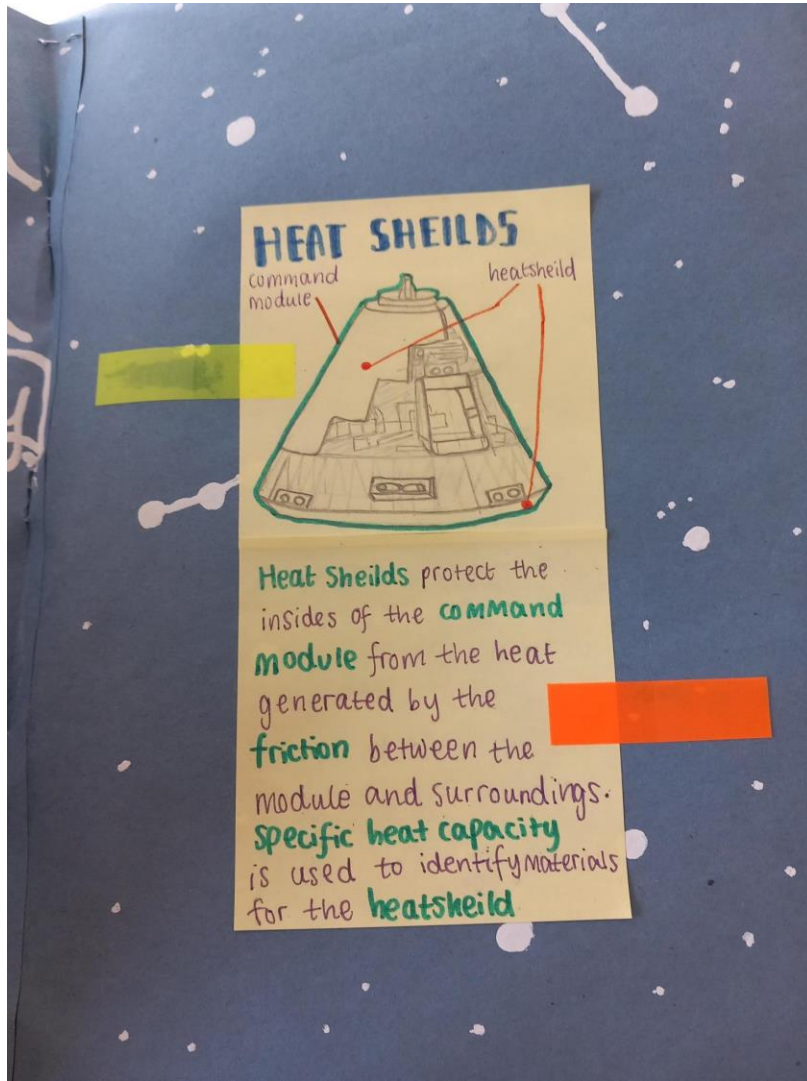 HEAT SHEILDS
command
module
heatsheild
Heat Sheilds protect the
insides of the command
module from the heat
generated by the
friction between the
module and surroundings.
specific heat capacity
is used to identify materials
for the heatsheild